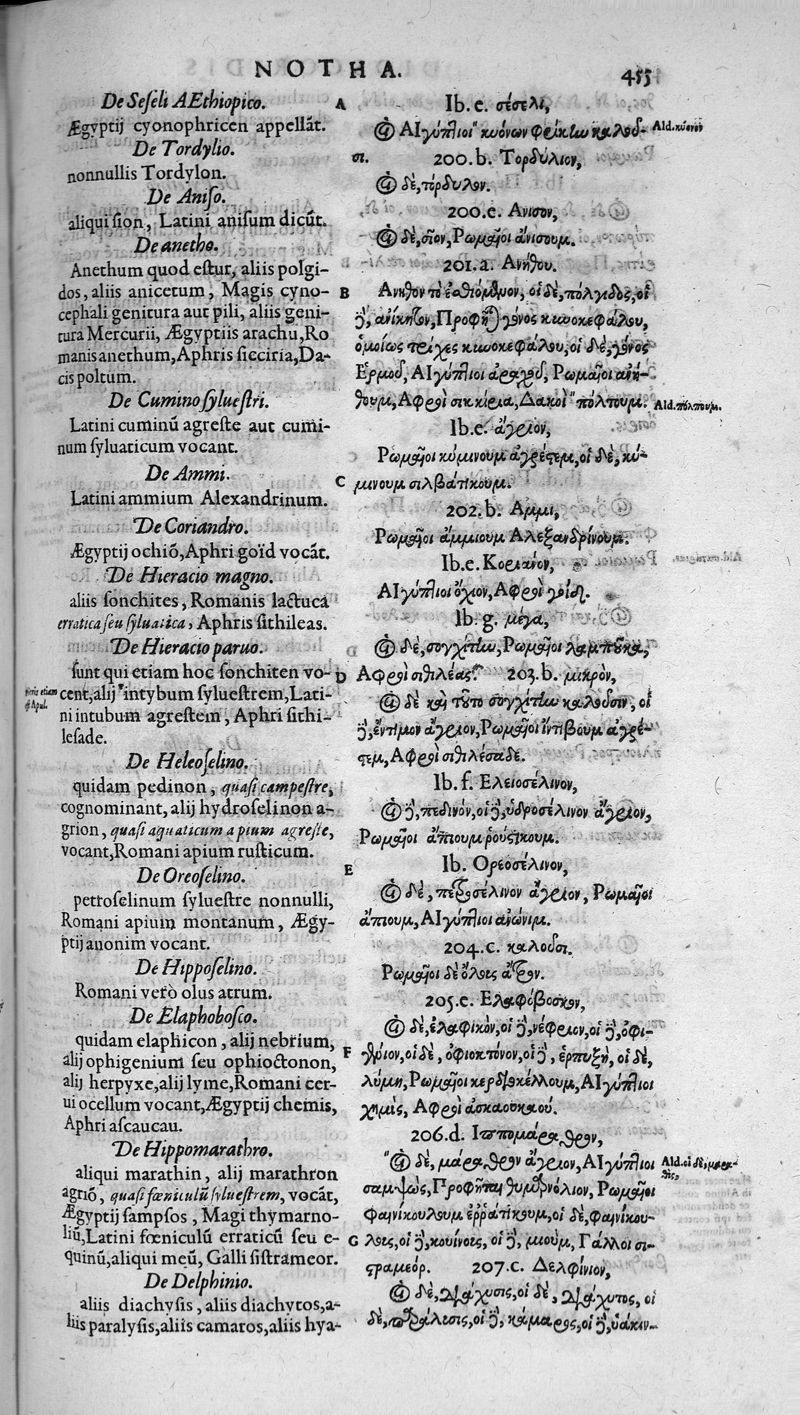 NOTHA.
455
De Seſeli AEthiopico.
Ægyptij cyonophricen appellāt.
De Tordylio.
nonnullis Tordylon.
De Aniſo.
aliqui ſion, Latini aniſum dicūt.
De anetho.
Anethum quod eſtur, aliis polgi-
dos, aliis anicetum, Magis cyno-
cephali genitura aut pili, aliis geni-
tura Mercurii, Ægyptiis arachu, Ro
manis anethum, Aphris ſicciria, Da-
cis poltum.
De Cumino ſylueſtri.
Latini cuminū agreſte aut cumi-
num ſyluaticum vocant.
De Ammi.
Latini ammium Alexandrinum.
De Coriandro.
Ægyptij ochiō, Aphri goïd vocāt.
De Hieracio magno.
aliis ſonchites, Romanis lactuca
erratica ſeu ſyluatica, Aphris ſithileas.
De Hieracio paruo.
ſunt qui etiam hoc ſonchiten vo-
cent, alij intybum ſylueſtrem, Lati-
ni intubum agreſtem, Aphri ſithi-
leſade.
De Heleoſelino.
quidam pedinon, quaſi campeſtre,
cognominant, alij hydroſelinon a-
grion, quaſi aquaticum apium agreſte,
vocant, Romani apium ruſticum.
De Oreoſelino.
petroſelinum ſylueſtre nonnulli,
Romani apium montanum, Ægy-
ptij anonim vocant.
De Hippoſelino.
Romani verò olus atrum.
De Elaphoboſco.
quidam elaphicon, alij nebrium,
alij ophigenium ſeu ophioctonon,
alij herpyxe, alij lyme, Romani cer-
ui ocellum vocant, Ægyptij chemis,
Aphri aſcaucau.
De Hippomarathro.
aliqui marathin, alij marathron
agriō, quaſi fœniculū ſylueſtrem, vocāt,
Ægyptij ſampſos, Magi thymarno-
liū, Latini fœniculū erraticū ſeu e-
quinū, aliqui meū, Galli ſiſtrameor.
De Delphinio.
aliis diachyſis, aliis diachytos, a-
liis paralyſis, aliis camaros, aliis hya-
A
B
C
D
E
F
G
Ib. e. σέσελι,
Οἱ Αἰγύπτιοι κυόνων φρίκην καλοῦ-
σι. 200.b. Τορδύλιον,
Οἱ δὲ, τόρδυλον.
200.e. Ανισον,
Οἱ δὲ, σίον, Ρωμαῖοι ἄνισουμ.
201.a. Ανήθου.
Ανηθον τὸ ἐσθιόμενον, οἱ δὲ, πόλγιδος, οἱ
δὲ, ἀνίκητον, Προφῆται γόνος κυνοκεφάλου,
ὁμοίως τρίχες κυνοκεφάλου, οἱ δὲ, γόνος
Ερμοῦ, Αἰγύπτιοι ἀραχοῦ, Ρωμαῖοι ἀνή-
θουμ, Αφροὶ σικκίρια, Δακοὶ πόλτουμ.
Ib. e. ἄγριον,
Ρωμαῖοι κύμινουμ ἀγρέστεμ, οἱ δὲ, κύ-
μινουμ σιλβάτικουμ.
202.b. Αμμι,
Ρωμαῖοι ἄμμιουμ Αλεξανδρίνουμ.
Ib. e. Κοριάνον,
Αἰγύπτιοι ὄχιον, Αφροὶ γοίδ.
Ib. g. μέγα,
Οἱ δὲ, σογχίτην, Ρωμαῖοι λακτοῦκα,
Αφροὶ σιθιλέας. 203.b. μικρὸν,
Οἱ δὲ καὶ τοῦτο σογχίτην καλοῦσιν, οἱ
δὲ, ἔντιμον ἄγριον, Ρωμαῖοι ἴντιβουμ ἀγρέ-
στεμ, Αφροὶ σιθιλέσαδε.
Ib. f. Ελειοσέλινον,
Οἱ δὲ, πεδινὸν, οἱ δὲ, ὑδροσέλινον ἄγριον,
Ρωμαῖοι ἄπιουμ ρούστικουμ.
Ib. Ορεοσέλινον,
Οἱ δὲ, πετροσέλινον ἄγριον, Ρωμαῖοι
ἄπιουμ, Αἰγύπτιοι ἀνώνιμ.
204.c. καλοῦσι.
Ρωμαῖοι δὲ ὄλυς ἄτρον.
205.e. Ελαφόβοσκον,
Οἱ δὲ, ἐλαφικὸν, οἱ δὲ, νέφριον, οἱ δὲ, ὀφι-
γένιον, οἱ δὲ, ὀφιοκτόνον, οἱ δὲ, ἑρπυξὴ, οἱ δὲ,
λύμη, Ρωμαῖοι κερβιοκέλλουμ, Αἰγύπτιοι
χημὶς, Αφροὶ ἀσκαουκαού.
206.d. Ιππομάραθρον,
Οἱ δὲ, μάραθρον ἄγριον, Αἰγύπτιοι
σαμψὼς, Προφῆται θυμαρνόλιον, Ρωμαῖοι
φαινίκουλουμ ἐρράτικουμ, οἱ δὲ, φαινίκου-
λους, οἱ δὲ, κουίνους, οἱ δὲ, μιούμ, Γάλλοι σι-
στραμεόρ. 207.c. Δελφίνιον,
Οἱ δὲ, διάχυσις, οἱ δὲ, διάχυτος, οἱ
δὲ, παράλυσις, οἱ δὲ, κάμαρος, οἱ δὲ, ὑάκιν-
Ald. πόλπουμ.